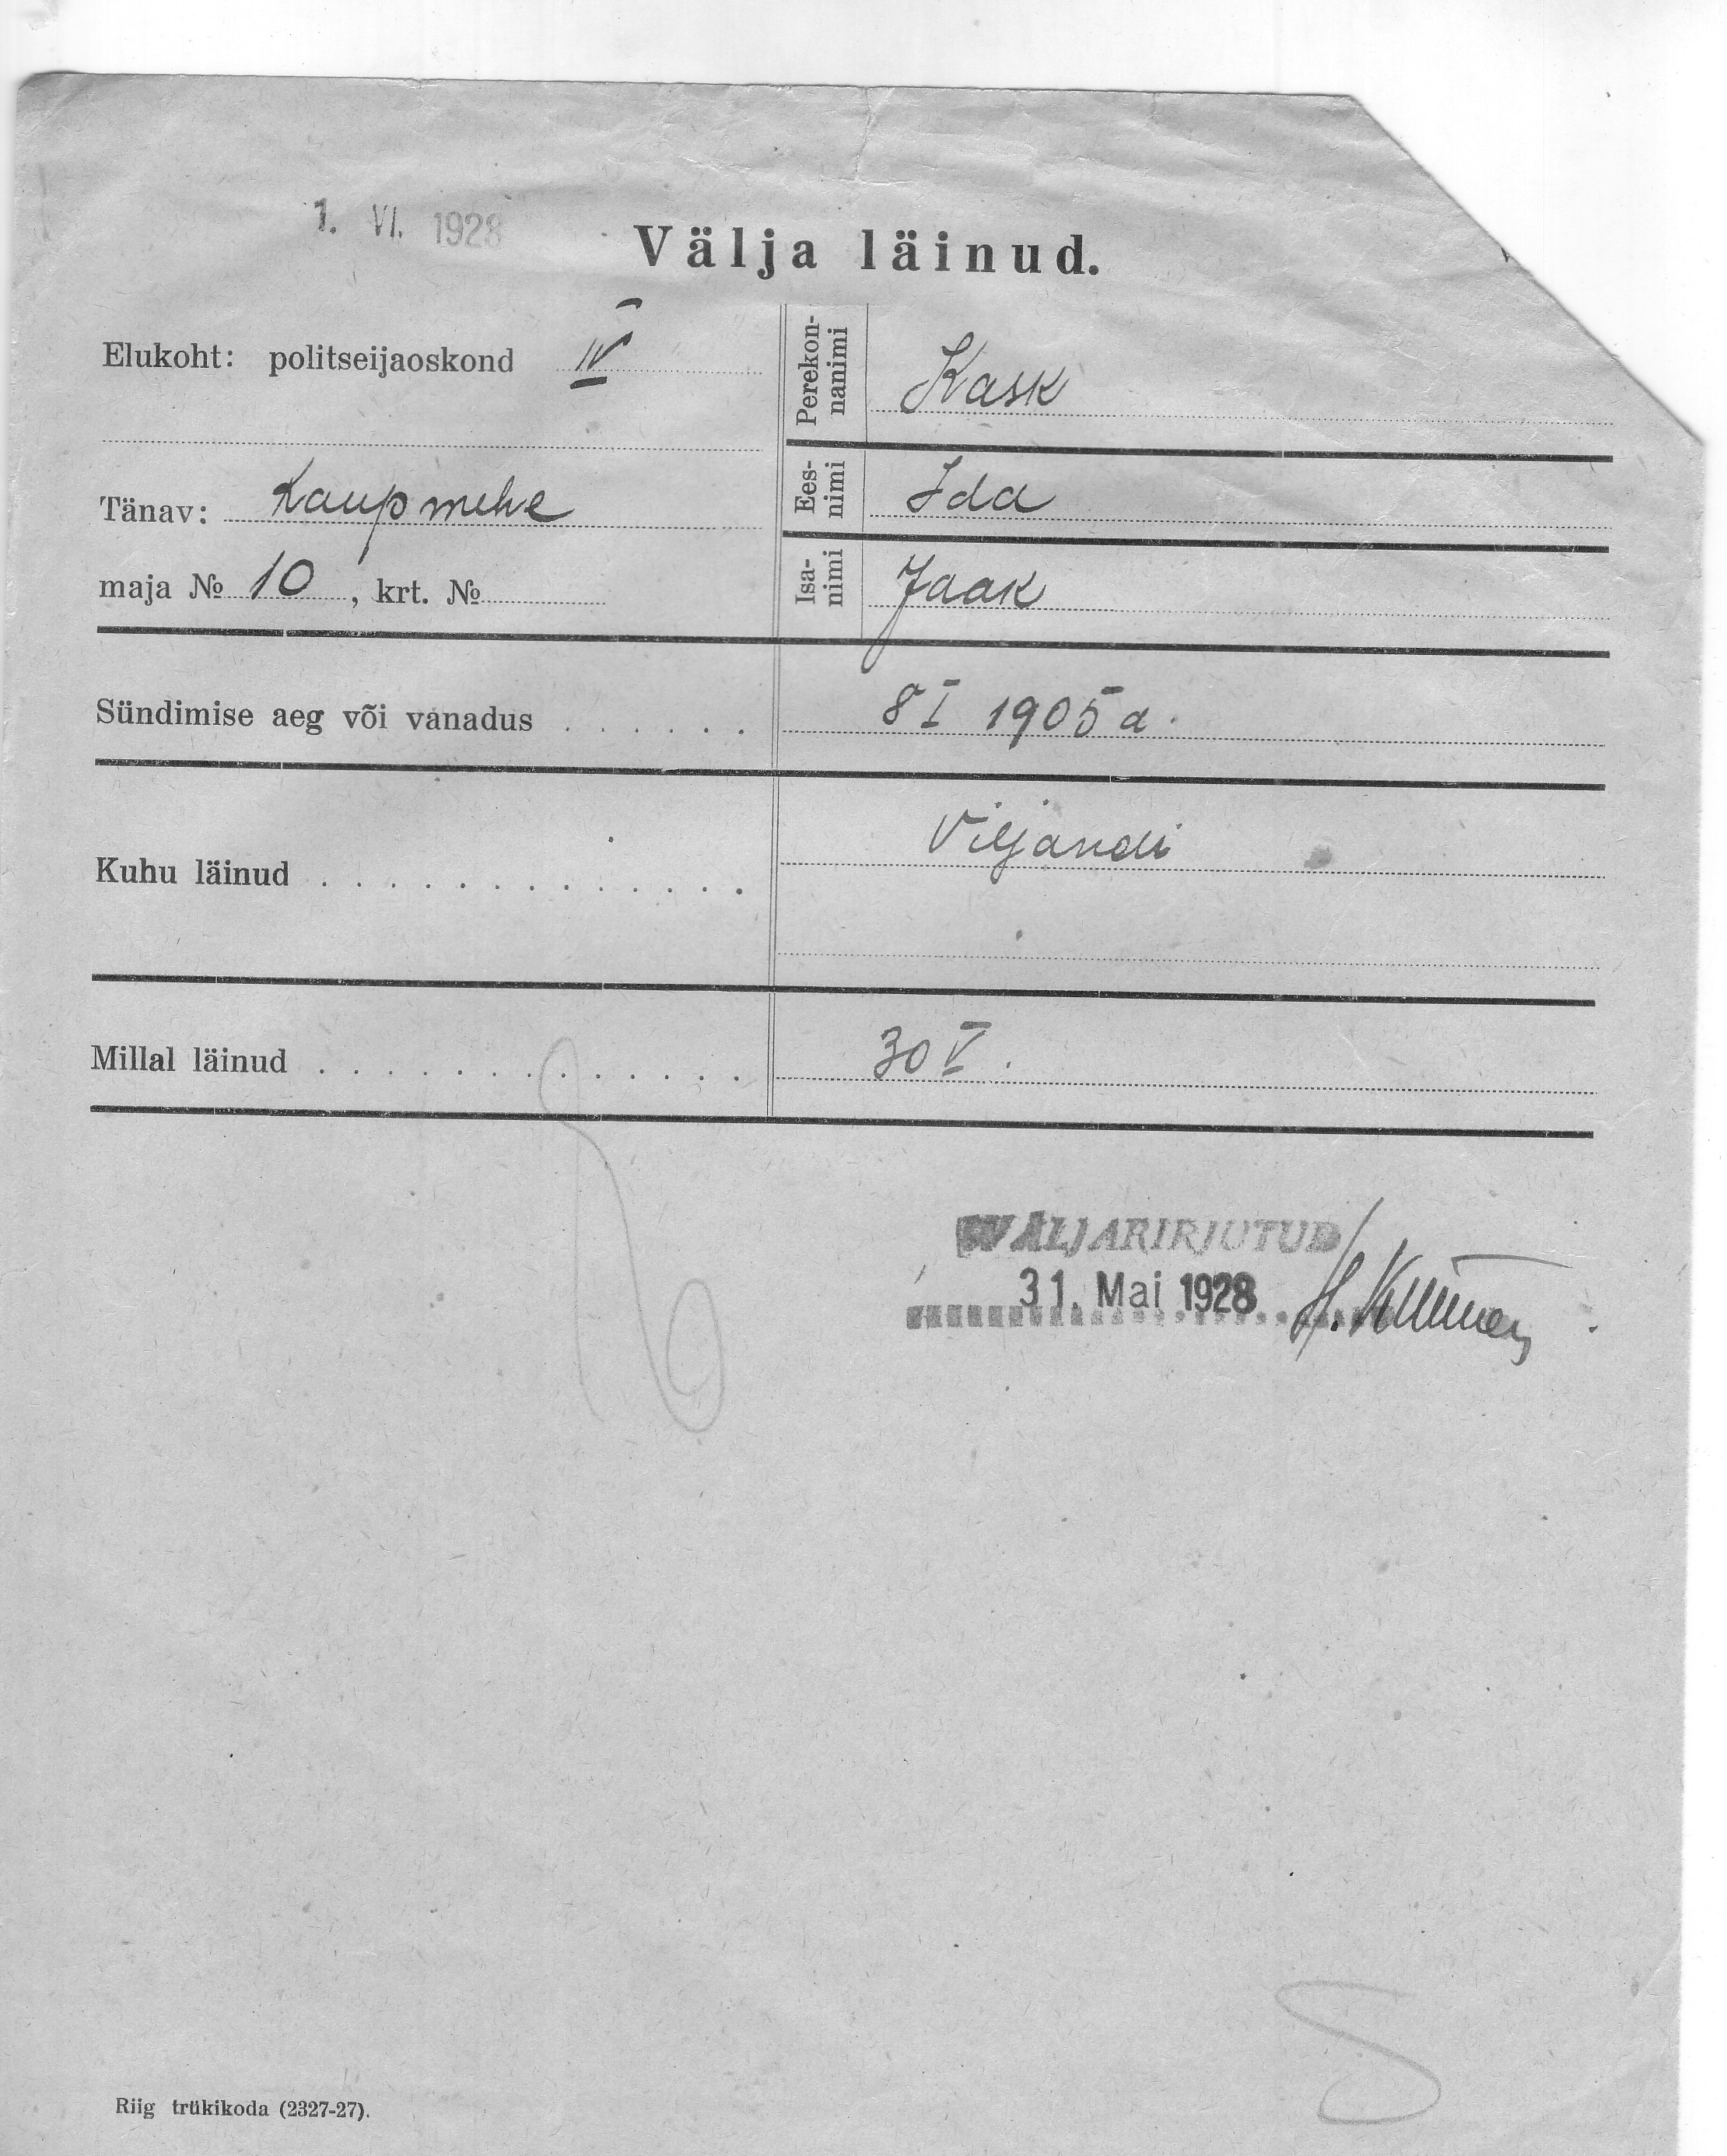 1. VI. 1928
Välja läinud.
Elukoht: politseijaoskond IV
Perekon-
nanimi
Kask
Tänav: Kaupmehe
Ees-
nimi
Ida
maja № 10, krt. №
Isa-
nimi
Jaak
Sündimise aeg või vanadus . . . . . . 8 I 1905 a.
Kuhu läinud . . . . . . . . . . . . . Viljandi
Millal läinud . . . . . . . . . . . . . 30 V.
31. Mai 1928
S
Riig trükikoda (2327-27).